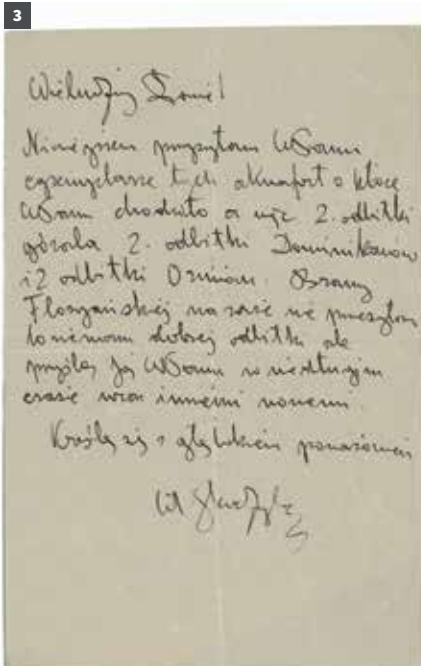 3
Wielmożny Panie!
Niniejszem przesyłam WPanu
egzemplarze tych akwafort o które
WPanu chodziło a więc 2. odbitki
górala 2. odbitki Dominikanów
i 2 odbitki Oszmian. Bramy
Floryańskiej na razie nie przesyłam
bo niemam dobrej odbitki ale
prześlę ją WPanu w niedługim
czasie wraz innemi nowemi.
Kreślę się z głębokiem poważaniem